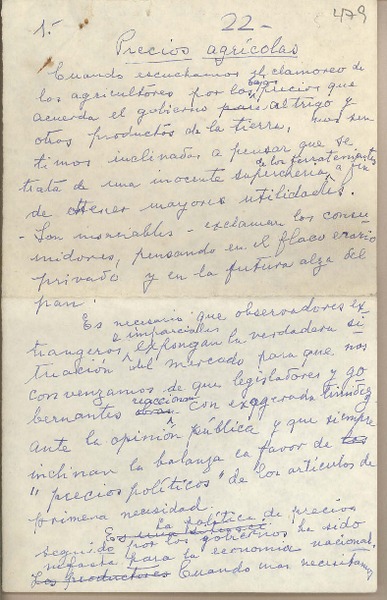 1.- 22- 479
Precios agrícolas
Cuando escuchamos el clamoreo de
los agricultores por los bajos precios que
acuerda el gobierno para al trigo y
otros productos de la tierra, nos sen
timos inclinados a pensar que se
trata de una inocente superchería de los terratenientes a fin
de obtener mayores utilidades.
- Son insaciables - exclaman los consu
midores, pensando en el flaco erario
privado y en la futura alza del
pan.
Es necesario que observadores ex
trangeros e imparciales expongan la verdadera si
tuación del mercado para que nos
convenzamos de que legisladores y go
bernantes reaccionan con exagerada timidez
ante la opinión pública y que siempre
inclinan la balanza a favor de los
"precios políticos" de los artículos de
primera necesidad.
La política de precios
seguido por los gobiernos ha sido
nefasta para la economía nacional.
Los productores Cuando mas necesitamos